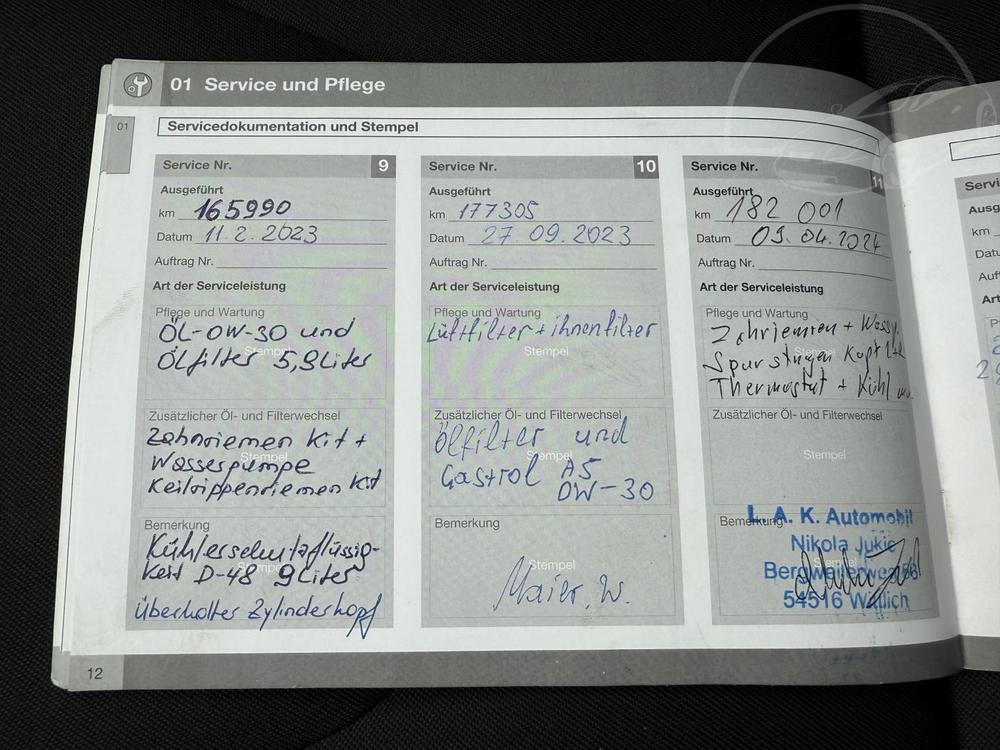 01 Service und Pflege
01
Servicedokumentation und Stempel
Service Nr. 9
Ausgeführt
km 165990
Datum 11.2.2023
Auftrag Nr.
Art der Serviceleistung
Pflege und Wartung
ÖL-0W-30 und
Ölfilter 5,9Liter
Stempel
Zusätzlicher Öl- und Filterwechsel
Zahnriemen Kit +
Wasserpumpe
Stempel
Keilrippenriemen Kit
Bemerkung
Kühlerschutzflüssig-
keit D-48 9Liter
Stempel
Überholter Zylinderkopf
Service Nr. 10
Ausgeführt
km 177305
Datum 27.09.2023
Auftrag Nr.
Art der Serviceleistung
Pflege und Wartung
Luftfilter + ihnenfilter
Stempel
Zusätzlicher Öl- und Filterwechsel
Ölfilter und
Stempel
Castrol A5
0W-30
Bemerkung
Stempel
Maier, W.
Service Nr. 11
Ausgeführt
km 182 001
Datum 09.04.2024
Auftrag Nr.
Art der Serviceleistung
Pflege und Wartung
Zahriemen +
Stempel
Thermostat + Kühl
Zusätzlicher Öl- und Filterwechsel
Stempel
Bemerkung
L. A. K. Automobil
Nikola Jukic
Stempel
54516 Wittlich
12
km